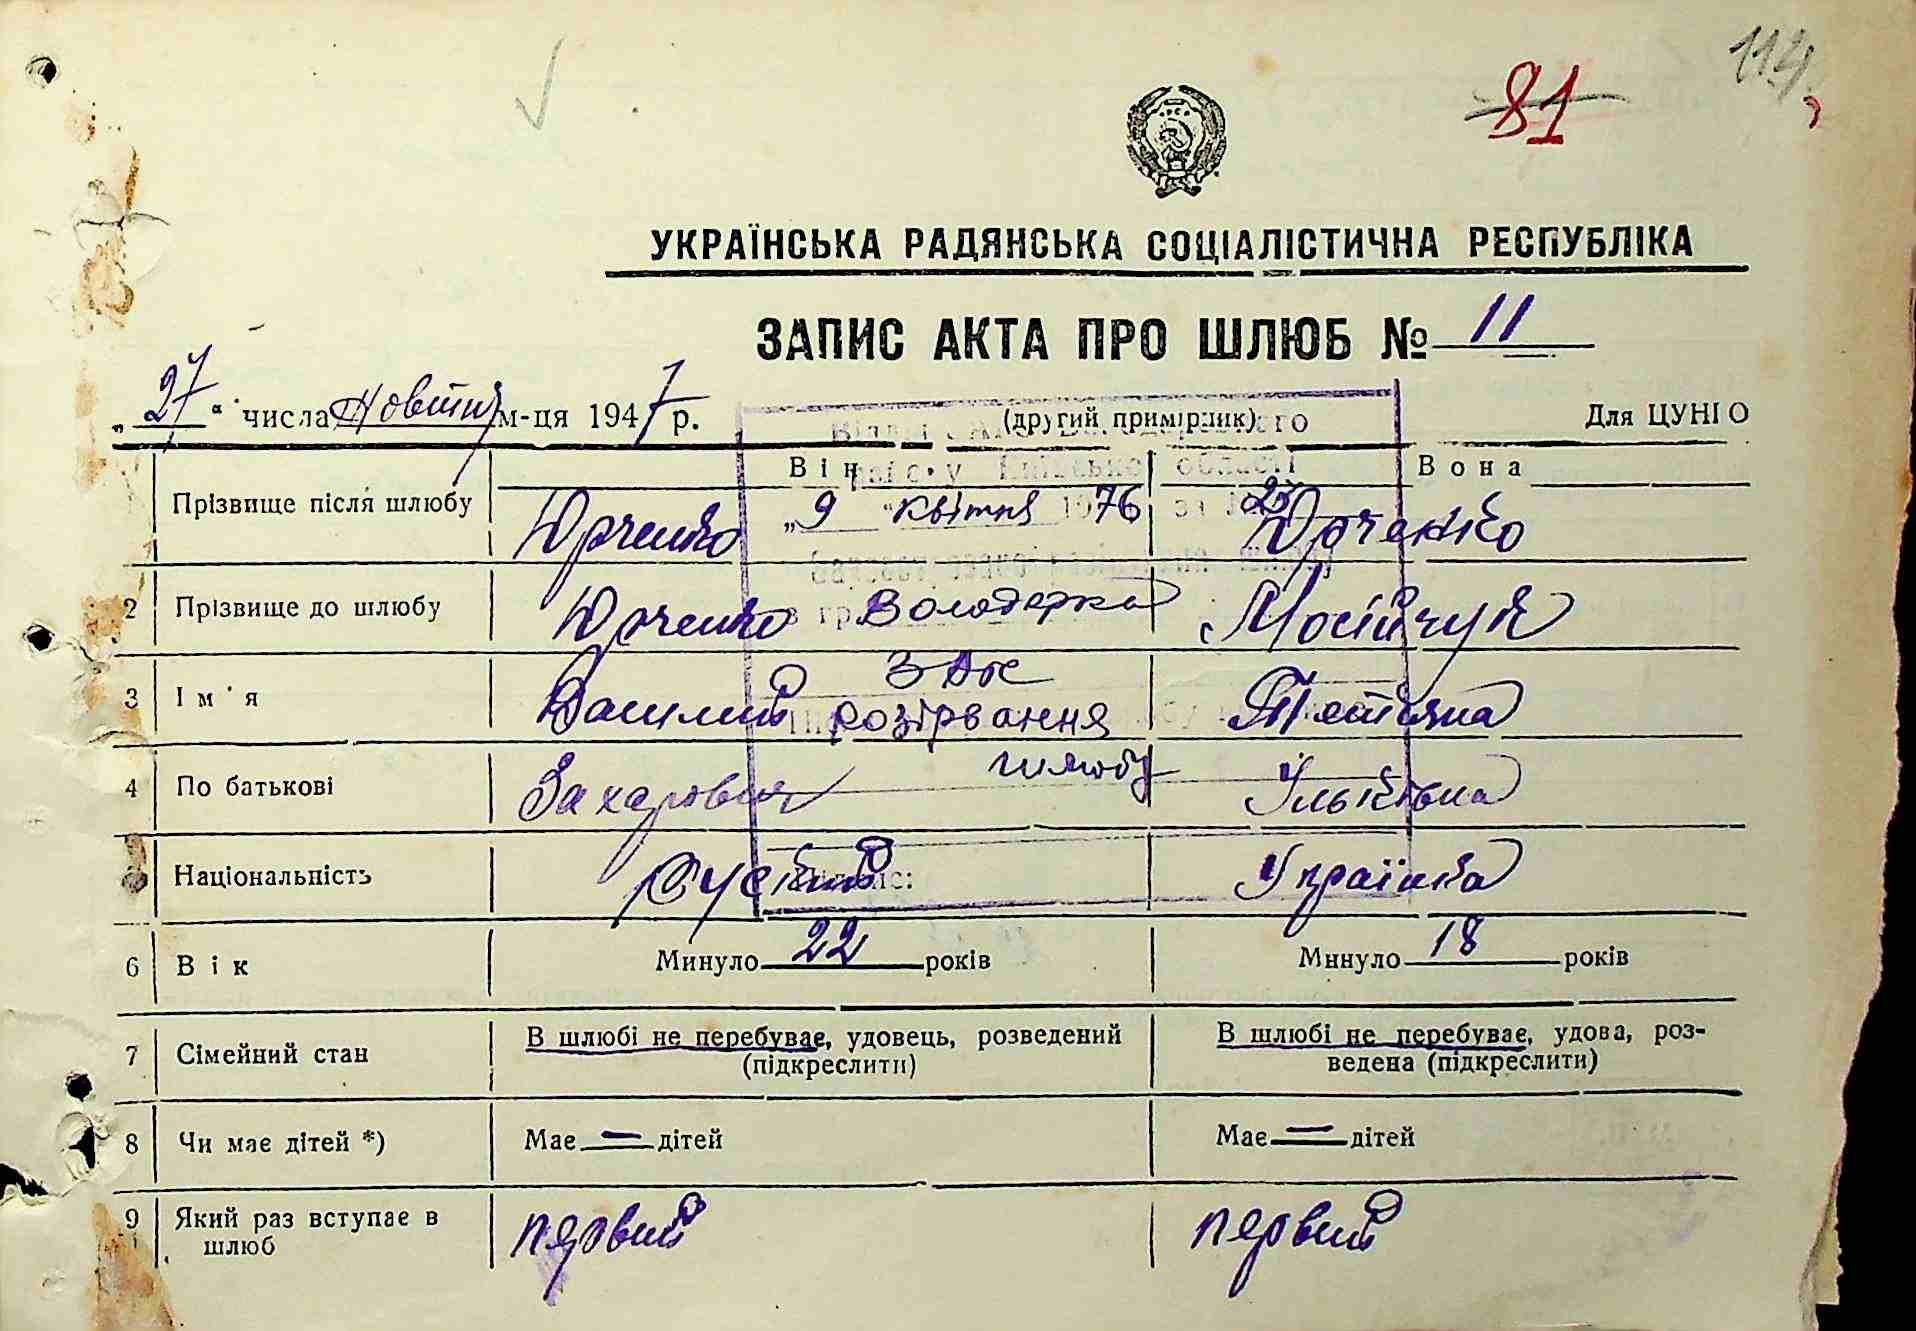 114
81
УКРАЇНСЬКА РАДЯНСЬКА СОЦІАЛІСТИЧНА РЕСПУБЛІКА
ЗАПИС АКТА ПРО ШЛЮБ № 11
„27“ числа Новтня м-ця 1947 р. (другий примірник) Для ЦУНГО
Він Вона
Прізвище після шлюбу Юрченко Юрченко
„9 “ квітня 1976 25
2 Прізвище до шлюбу Юрченко Мосійчук
в гр. Володарка
3 Ім'я Василий Тетяна
ЗАГС
розірвання
шлюбу
4 По батькові Захарович Ільківна
Національність Руский Українка
6 Вік Минуло 22 років Минуло 18 років
7 Сімейний стан В шлюбі не перебуває, удовець, розведений (підкреслити) В шлюбі не перебуває, удова, роз-
ведена (підкреслити)
8 Чи має дітей *) Має — дітей Має — дітей
9 Який раз вступає в шлюб первий первий